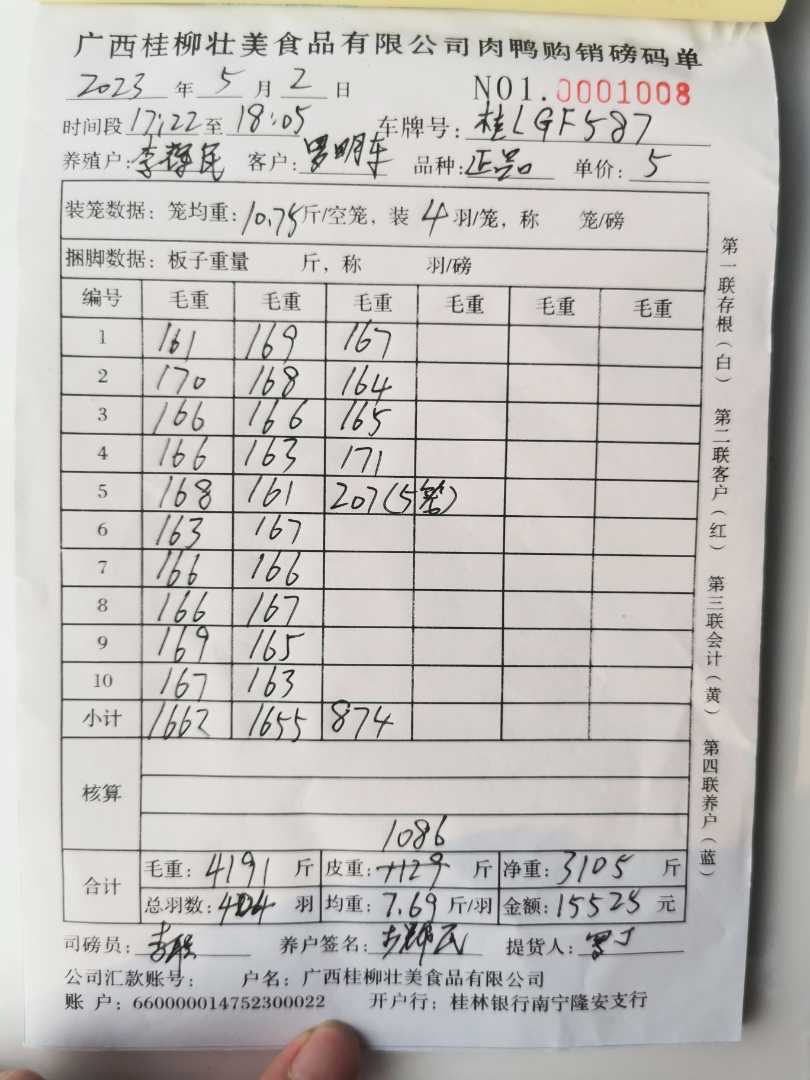 广西桂柳壮美食品有限公司肉鸭购销磅码单
2023 年 5 月 2 日 NO1.0001008
时间段 17:22 至 18:05 车牌号: 桂LGF587
养殖户: 李 民 客户: 罗明车 品种: 正品 单价: 5
装笼数据: 笼均重: 10.75 斤/空笼, 装 4 羽/笼, 称 笼/磅
捆脚数据: 板子重量 斤, 称 羽/磅
编号 毛重 毛重 毛重 毛重 毛重 毛重
1 161 169 167
2 170 168 164
3 166 166 165
4 166 163 171
5 168 161 207(5笼)
6 163 167
7 166 166
8 166 167
9 169 165
10 167 163
小计 1662 1655 874
核算
1086
合计
毛重: 4191 斤 皮重: 1129 斤 净重: 3105 斤
总羽数: 404 羽 均重: 7.69 斤/羽 金额: 15525 元
司磅员: 李 养户签名: 民 提货人: 罗
公司汇款账号: 户名: 广西桂柳壮美食品有限公司
账 户: 660000014752300022 开户行: 桂林银行南宁隆安支行
第一联存根(白) 第二联客户(红) 第三联会计(黄) 第四联养户(蓝)